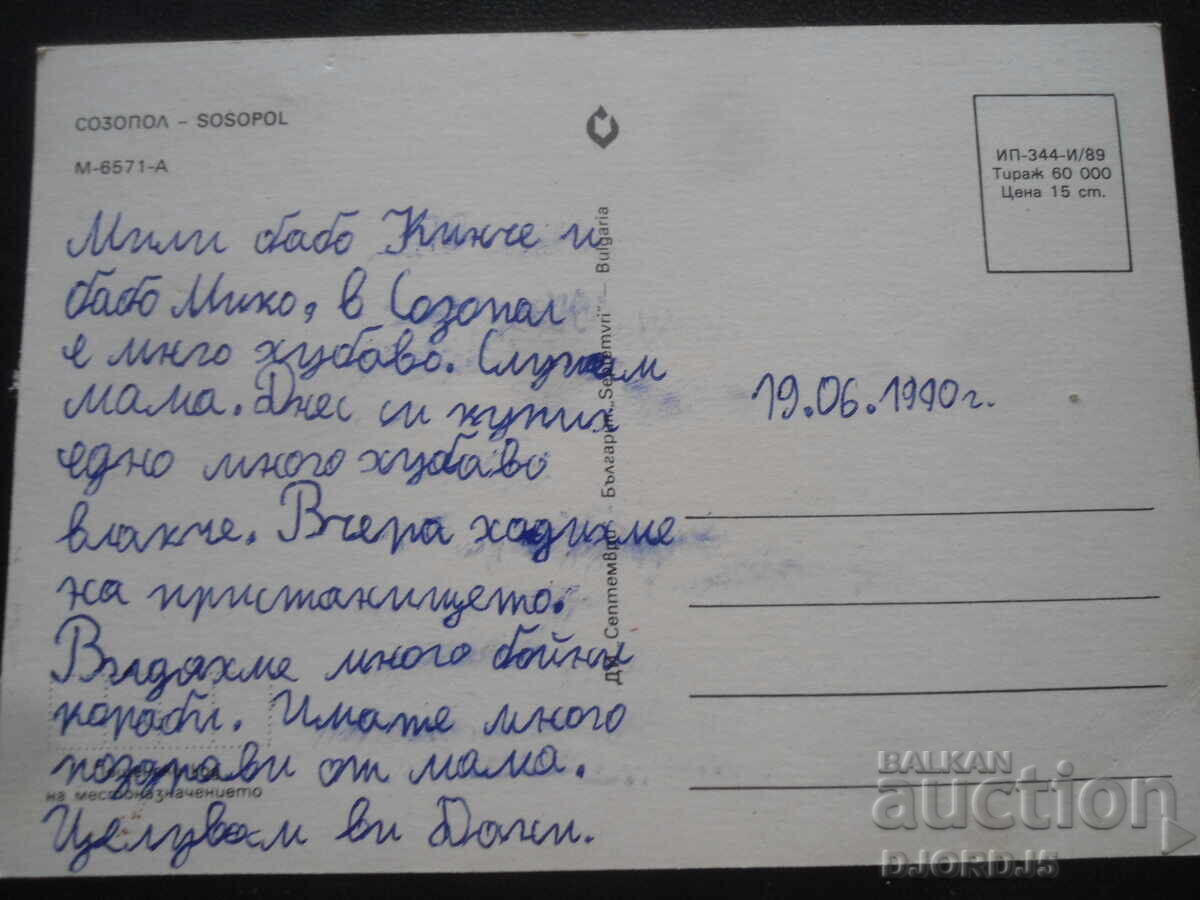 СОЗОПОЛ – SOSOPOL
М-6571-А
ИП-344-И/89
Тираж 60 000
Цена 15 ст.
Мили бабо Кинче и
бабо Мико, в Созопол
е мнго хубаво. Слушам
мама. Днес си купих
едно много хубаво
влакче. Вчера ходихме
на пристанището.
Видяхме много бойни
кораби. Имате много
поздрави от мама.
на местоназначението
Целувам ви
19.06.1990г.
ДИ „Септември" – България „Septemvri" – Bulgaria
BALKAN
auction
DJORDJ5